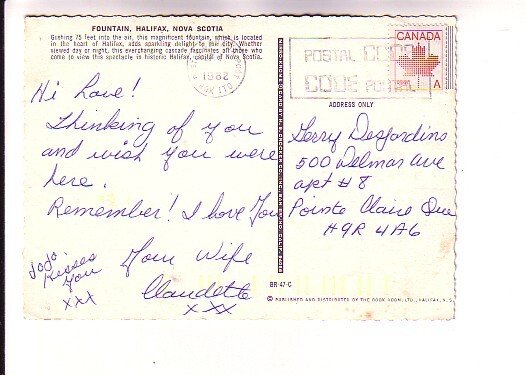 FOUNTAIN, HALIFAX, NOVA SCOTIA
Gushing 75 feet into the air, this magnificent fountain, which is located
in the heart of Halifax, adds sparkling delight to the city. Whether
viewed day or night, this everchanging cascade fascinates all those who
come to view this spectacle in historic Halifax, capital of Nova Scotia.
Hi Love!
Thinking of you
and wish you were
here.
Remember! I love You
Your Wife
Claudette
xxx
JoJo
Kisses
You
xxx
1982
POSTAL CODE
CODE POSTAL
CANADA
A
ADDRESS ONLY
Gerry Desjardins
500 Delmar Ave
apt # 8
Pointe Claire Que
H9R 4A6
BR-47-C
© PUBLISHED AND DISTRIBUTED BY THE BOOK ROOM, LTD., HALIFAX, N.S.